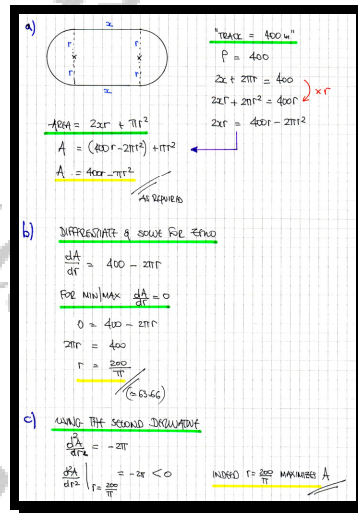 a)
x
r
r
r
r
x
"TRACK = 400 m"
P = 400
2x + 2πr = 400
2xr + 2πr² = 400r
× r
2xr = 400r - 2πr²
AREA = 2xr + πr²
A = (400r - 2πr²) + πr²
A = 400r - πr²
AS REQUIRED
b)
DIFFERENTIATE & SOLVE FOR ZERO
dA/dr = 400 - 2πr
FOR MIN/MAX dA/dr = 0
0 = 400 - 2πr
2πr = 400
r = 200/π
(≈ 63.66)
c)
USING THE SECOND DERIVATIVE
d²A/dr² = -2π
d²A/dr² | r = 200/π = -2π < 0
INDEED r = 200/π MAXIMISES A